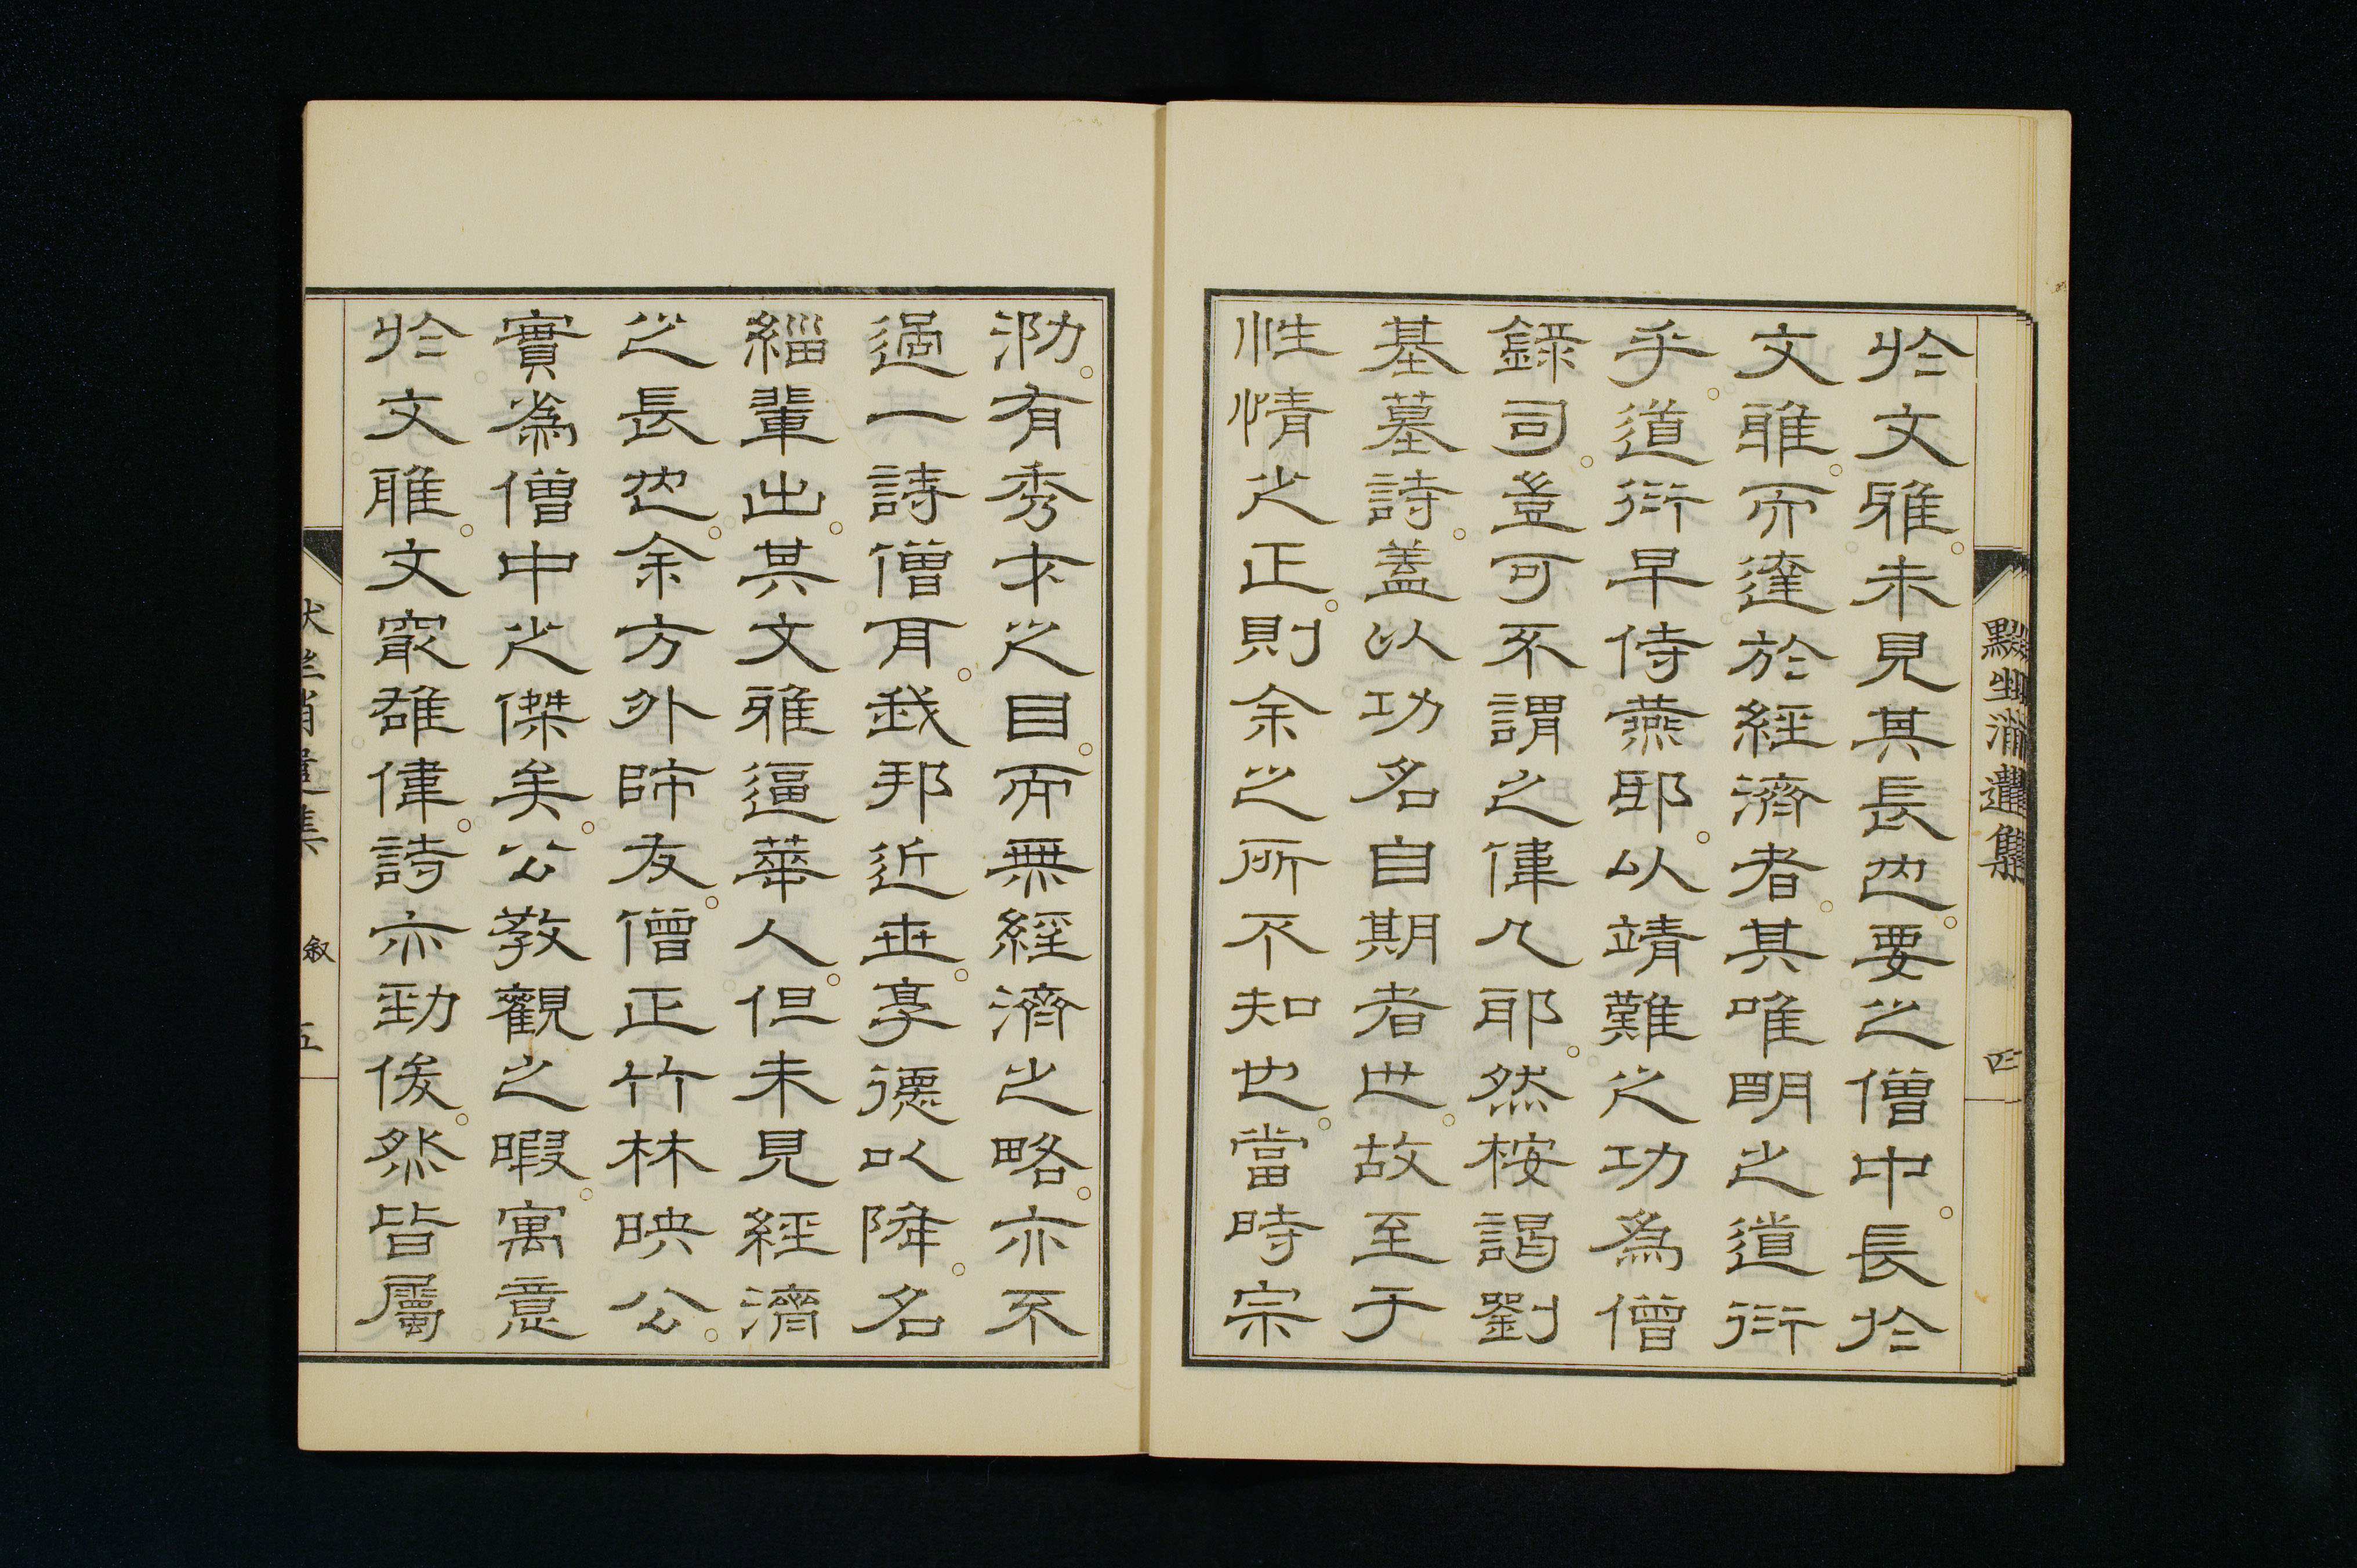 於文雅。未見其長也。要之僧中。長於
文雅。而達於經濟者。其唯明之道衍
乎。道衍早侍燕邸。以靖難之功為僧
錄司。豈可不謂之偉人耶。然桉謁劉
基墓詩。蓋以功名自期者也。故至于
性情之正。則余之所不知也。當時宗
泐。有秀才之目。而無經濟之略。亦不
過一詩僧耳。我邦近世。享德以降。名
緇輩出。其文雅逼華人。但未見經濟
之長也。余方外師友。僧正竹林映公。
實為僧中之傑矣。公教觀之暇。寓意
於文雅。文最雄偉。詩亦勁俊。然皆屬
叙 五